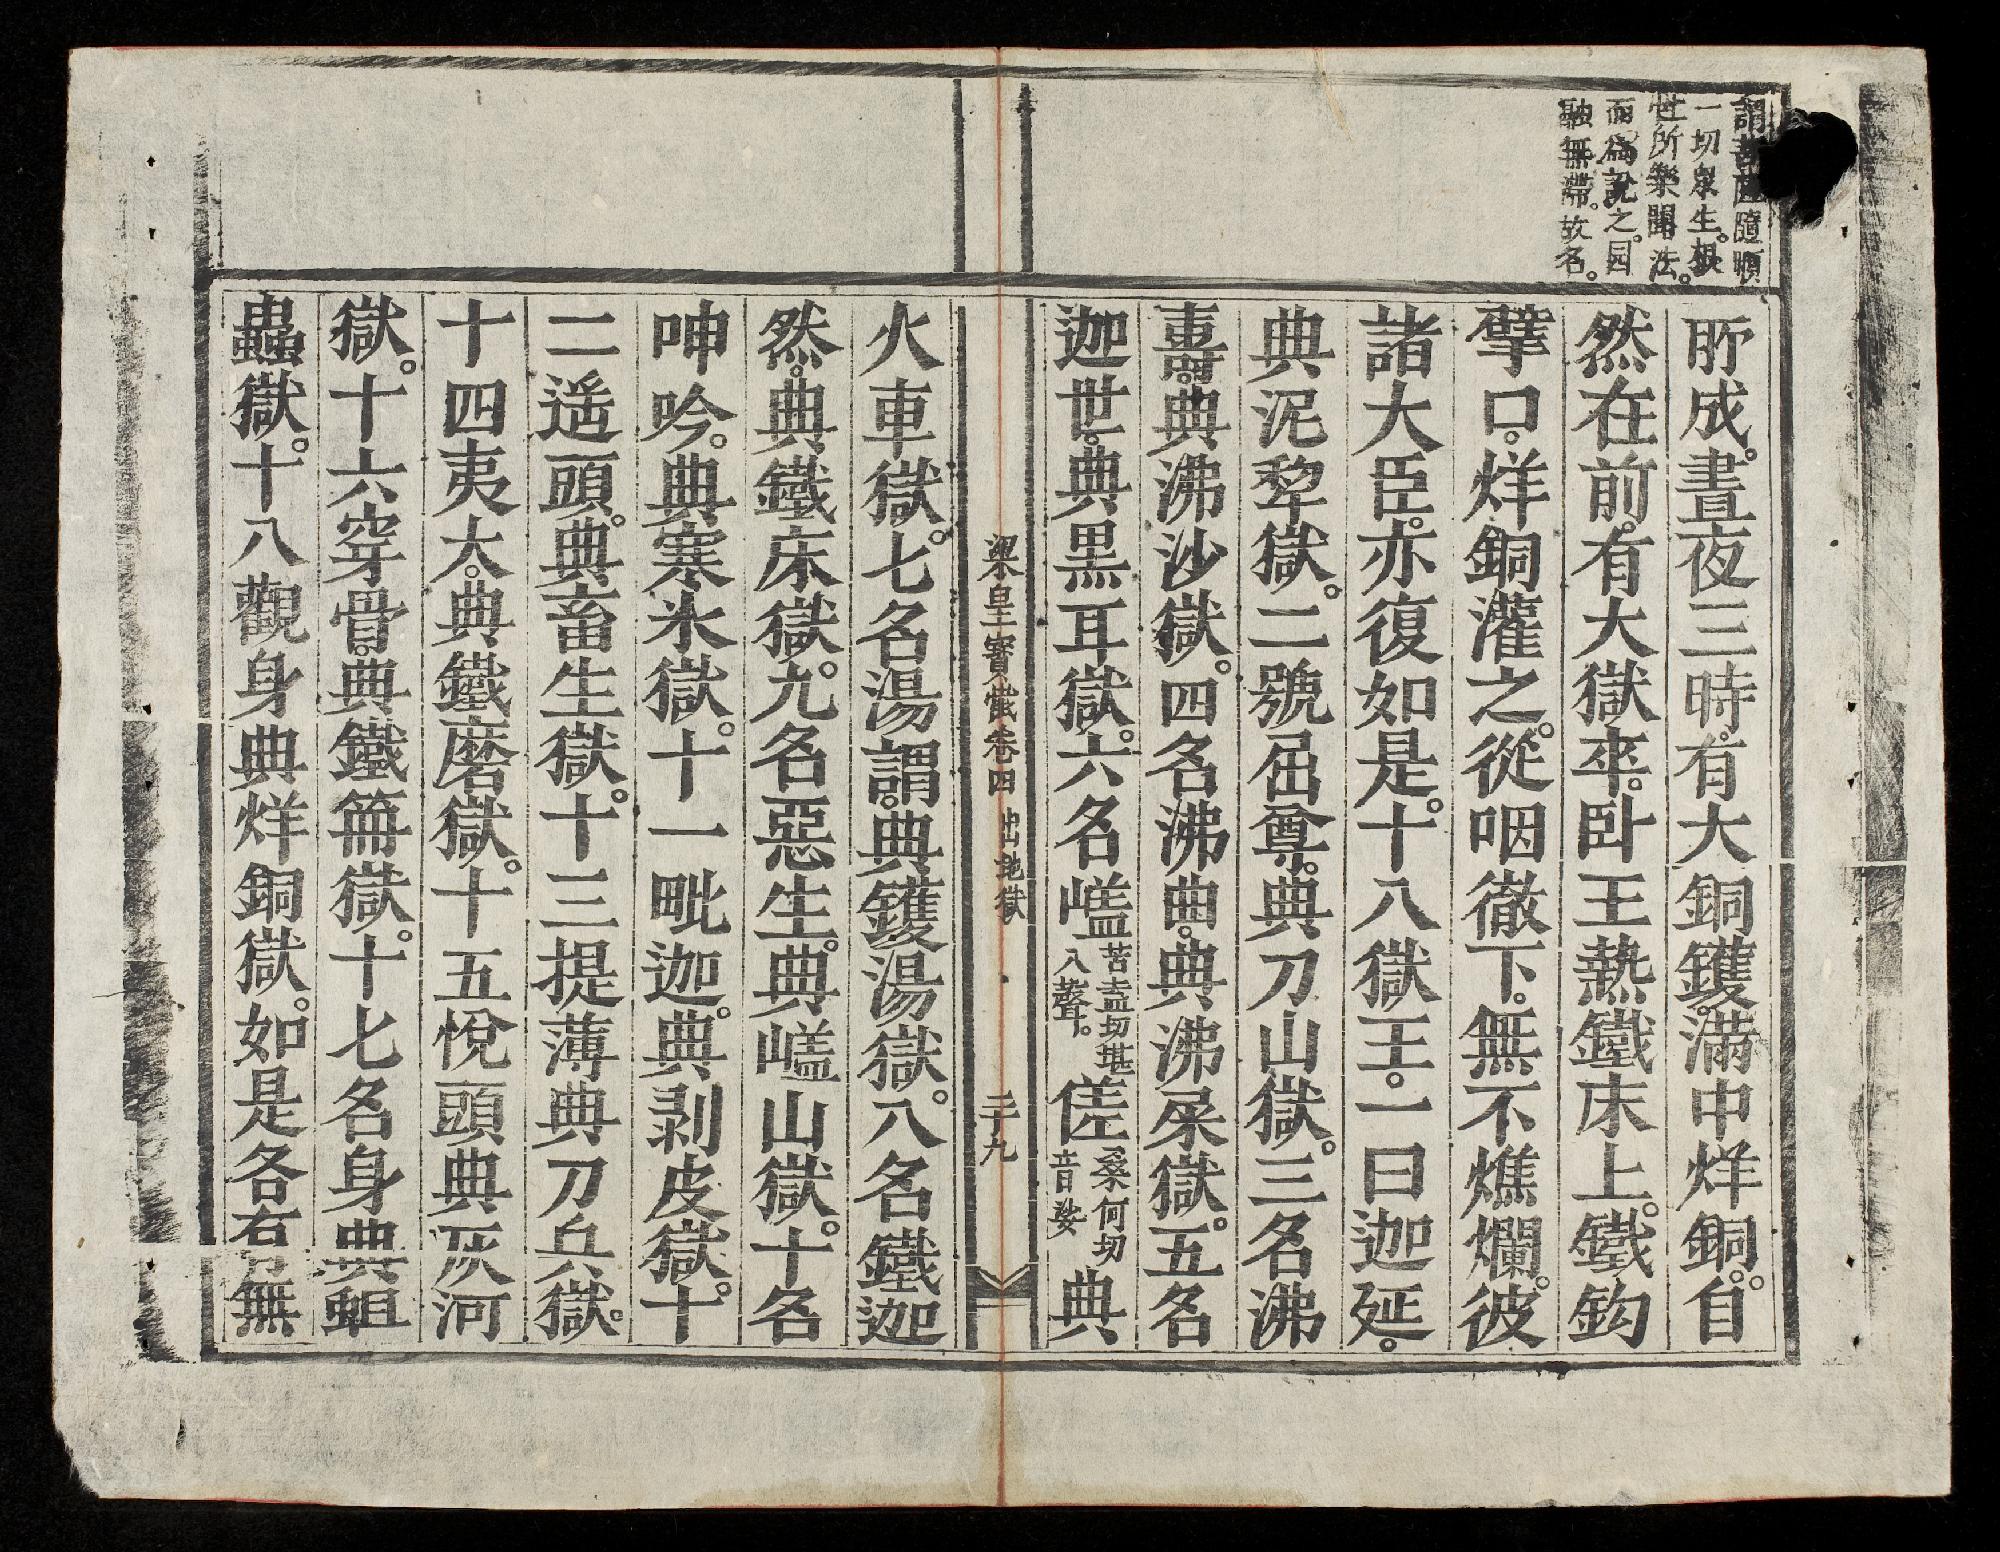 謂菩薩隨順
一切衆生根
性所樂聞法。
而爲說之。圓
融無滯。故名。
所成。晝夜三時。有大銅鑊。滿中烊銅。自
然在前。有大獄卒。臥王熱鐵床上。鐵鈎
擘口。烊銅灌之。從咽徹下。無不燋爛。彼
諸大臣。亦復如是。十八獄王。一曰迦延。
典泥犂獄。二號屈尊。典刀山獄。三名沸
壽。典沸沙獄。四名沸曲。典沸屎獄。五名
迦世。典黑耳獄。六名㠍苦盍切堪入聲。傞桑何切音娑典
梁皇寶懺卷四 出地獄 二十九
火車獄。七名湯謂。典鑊湯獄。八名鐵迦
然。典鐵床獄。九名惡生。典㠍山獄。十名
呻吟。典寒氷獄。十一毗迦。典剥皮獄。十
二遥頭。典畜生獄。十三提薄典刀兵獄。
十四夷大。典鐵磨獄。十五悅頭典灰河
獄。十六穿骨。典鐵冊獄。十七名身典蛆
蟲獄。十八觀身典烊銅獄。如是各有無